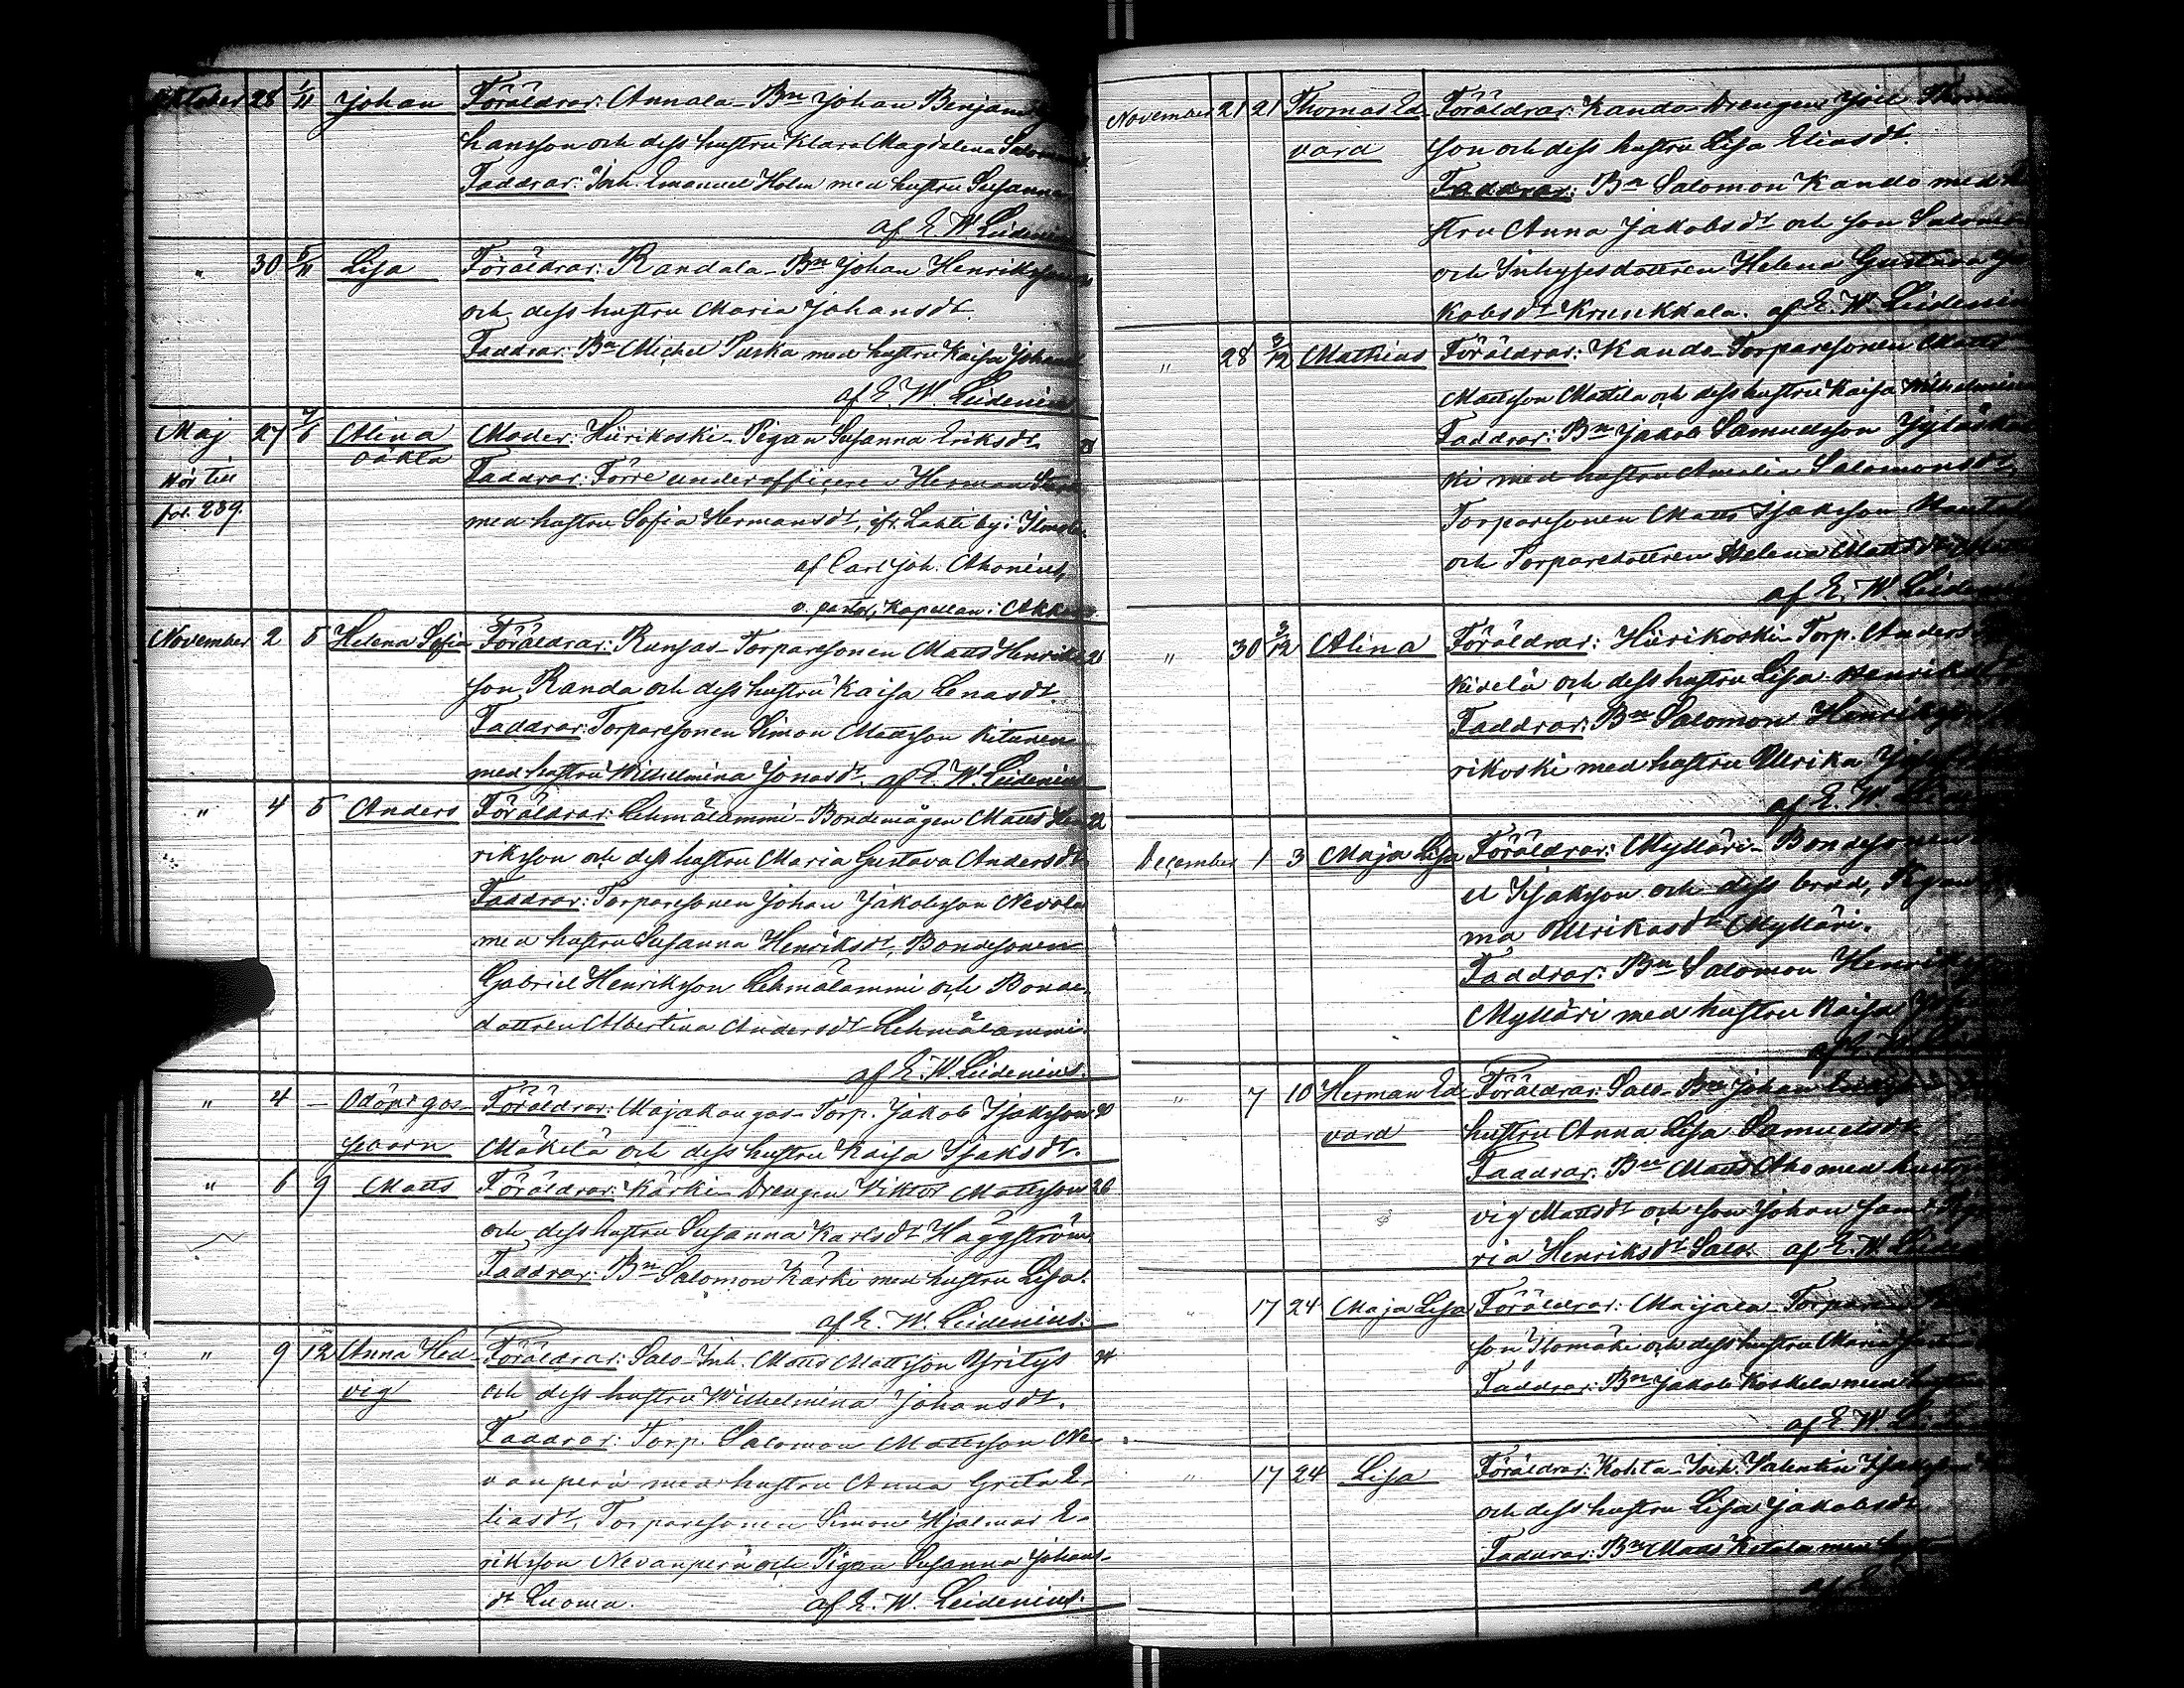 Oktober 28 1/11 Johan Föräldrar: Annala-Bn Johan Benjam
hansson och dess hustru Klara Magdalena Salomonsdt.
Faddrar: Inh. Emanuel Holm med hustru Susanna
af E. W. Leidenius
" 30 5/11 Lisa Föräldrar: Randala-Bn Johan Henriksson
och dess hustru Maria Johansdt.
Faddrar: Bn Michel Puska med hustru Kaisa Johansdt
af E. W. Leidenius
Maj 27 7/6 Alina Moder: Hiirikoski-Pigan Susanna Eriksdt.
oäkta
Hör till Faddrar: Förre underofficeren Herman
fol. 289. med hustru Sofia Hermansdt, ifr. Lahti by i Ilmola.
af Carl Joh. Ahonius,
v. pastor, Kapellan i
November 2 5 Helena Sofia Föräldrar: Runsas-Torparesonen Matts Henrik- 21
son Randa och dess hustru Kaisa Lenasdt.
Faddrar: Torparesonen Simon Mattsson Kitunen
med hustru Wilhelmina Jonasdt. af E. W. Leidenius
" 4 5 Anders Föräldrar: Lehmälammi-Bondemågen Matts Hen- 22
riksson och dess hustru Maria Gustava Andersdt
Faddrar: Torparesonen Johan Jakobsson Nevala
med hustru Susanna Henriksdt, Bondesonen
Gabriel Henriksson Lehmälammi och Bonde-
dottren Albertina Andersdt Lehmälammi.
af E. W. Leidenius.
" 4 - Odöpt gos- Föräldrar: Majakangas-Torp. Jakob Isaksson 30
sebarn Mäkelä och dess hustru Kaisa Isaksdt.
" 6 9 Matts Föräldrar: Kärki-Drengen Viktor Mattsson 26
och dess hustru Susanna Karlsdt Häggström
Faddrar: Bn Salomon Kärki med hustru Lisa.
af E. W. Leidenius.
" 9 12 Anna Hed- Föräldrar: Salo-Inh. Matts Mattsson Yritys 34
vig och dess hustru Wilhelmina Johansdt.
Faddrar: Torp. Salomon Mattsson Ne-
vanperä med hustru Anna Greta E-
liasdt, Torparesonen Simon Hjalmar E-
riksson Nevanperä och Pigan Susanna Johans-
dt Luoma. af E. W. Leidenius.
November 21 21 Thomas Ed- Föräldrar: Kando-Drengen Joel
vard son och dess hustru Lisa Eliasdt.
Faddrar: Bn Salomon Kando med hu-
stru Anna Jakobsdt och son Salomon
och Inhysesdottren Helena Gustava Ja-
kobsdt Krunkkala. af E. W. Leidenius
" 28 3/12 Mathias Föräldrar: Kando-Torparesonen Matts
Mattsson Mattila och dess hustru Kaisa Wilhelmina
Faddrar: Bn Jakob Samuelsson Jyläskos-
ki med hustru Amalia Salomonsdt,
Torparesonen Matts Isaksson
och Torparedottren Helena Mattsdt
af E. W. Leidenius
" 30 3/12 Alina Föräldrar: Hiirikoski-Torp. Anders
kivelä och dess hustru Lisa Henriksdt
Faddrar: Bn Salomon Henriksson
rikoski med hustru Ulrika
af E. W.
December 1 3 Maja Lisa Föräldrar: Mylläri-Bondesonen
el Isaksson och dess brud, Pigan
ma Ulrikasdt Mylläri.
Faddrar: Bn Salomon Henriksson
Mylläri med hustru Kaisa
af E. W.
" 7 10 Herman Ed- Föräldrar: Salo-Bn Johan
vard hustru Anna Lisa Samuelsdt
Faddrar: Bn Matts Aho med hustru
vig Mattsdt och son Johan samt
ria Henriksdt Salo. af E. W. Leidenius
" 17 24 Maja Lisa Föräldrar: Maijala-Torparen
son Ilomäki och dess hustru Maria
Faddrar: Bn Jakob Koskela med hustru
af E. W.
" 17 24 Lisa Föräldrar: Kohta-Inh. Valentin Isaksson
och dess hustru Lisa Jakobsdt
Faddrar: Bn Matts Ketola med
af E.